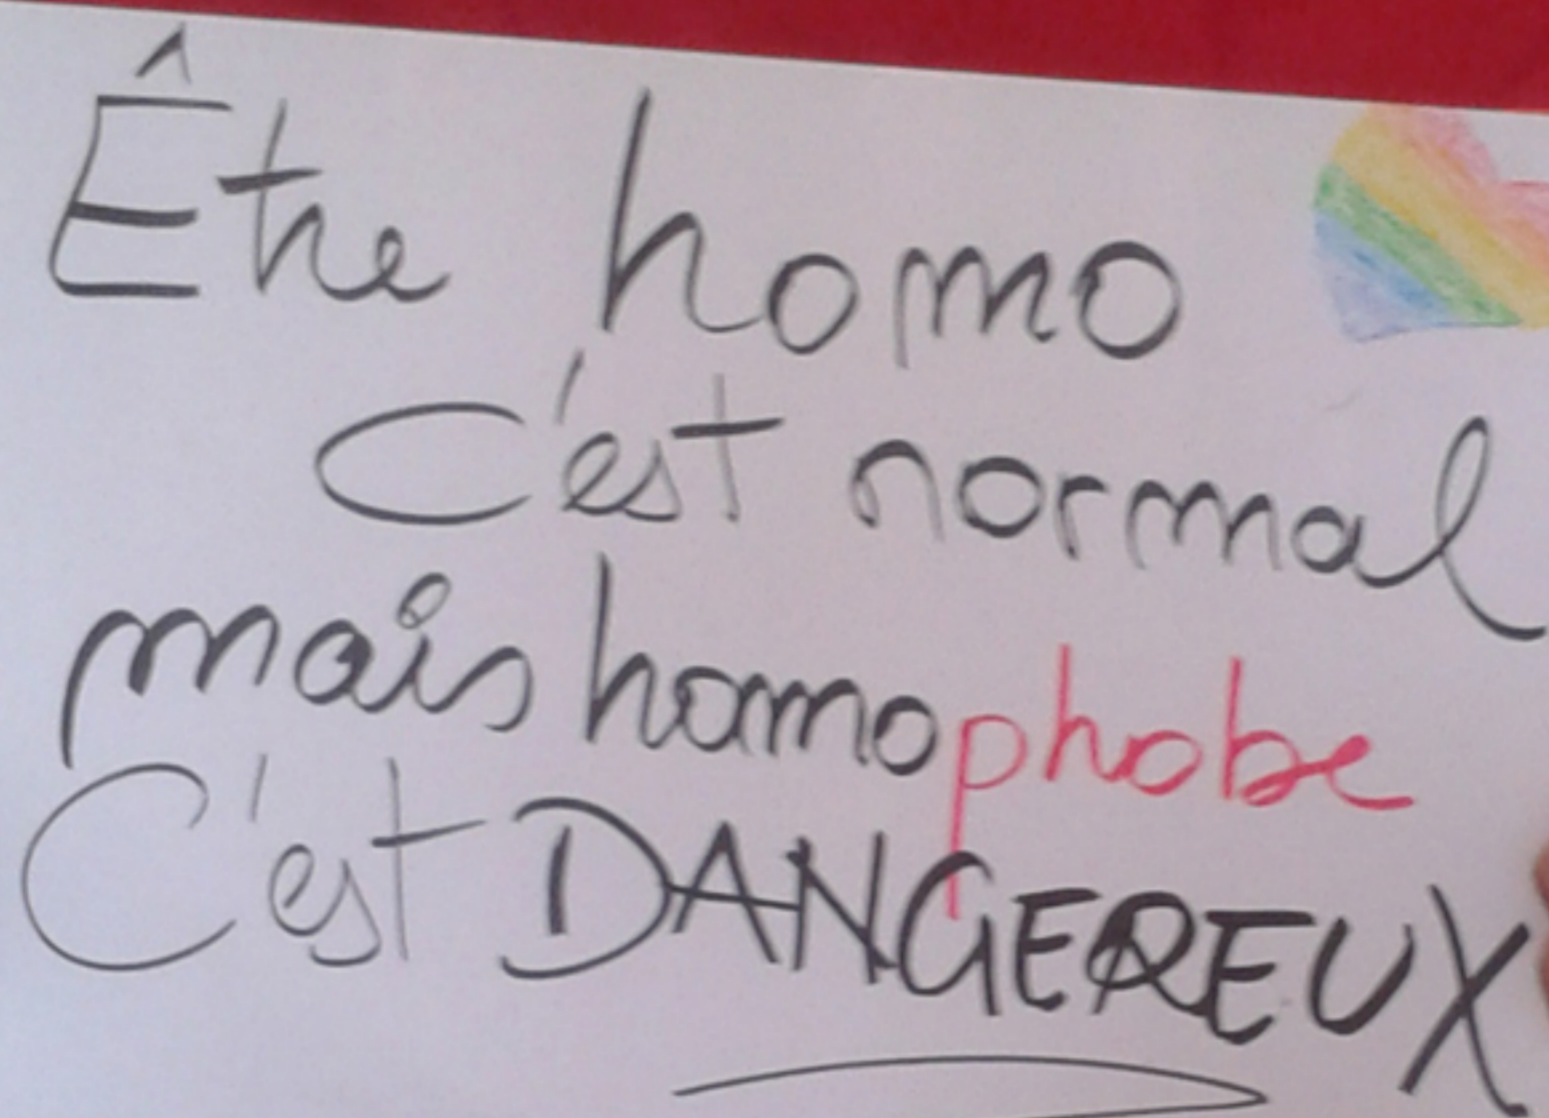 Être homo
C'est normal
mais homophobe
C'est DANGEREUX